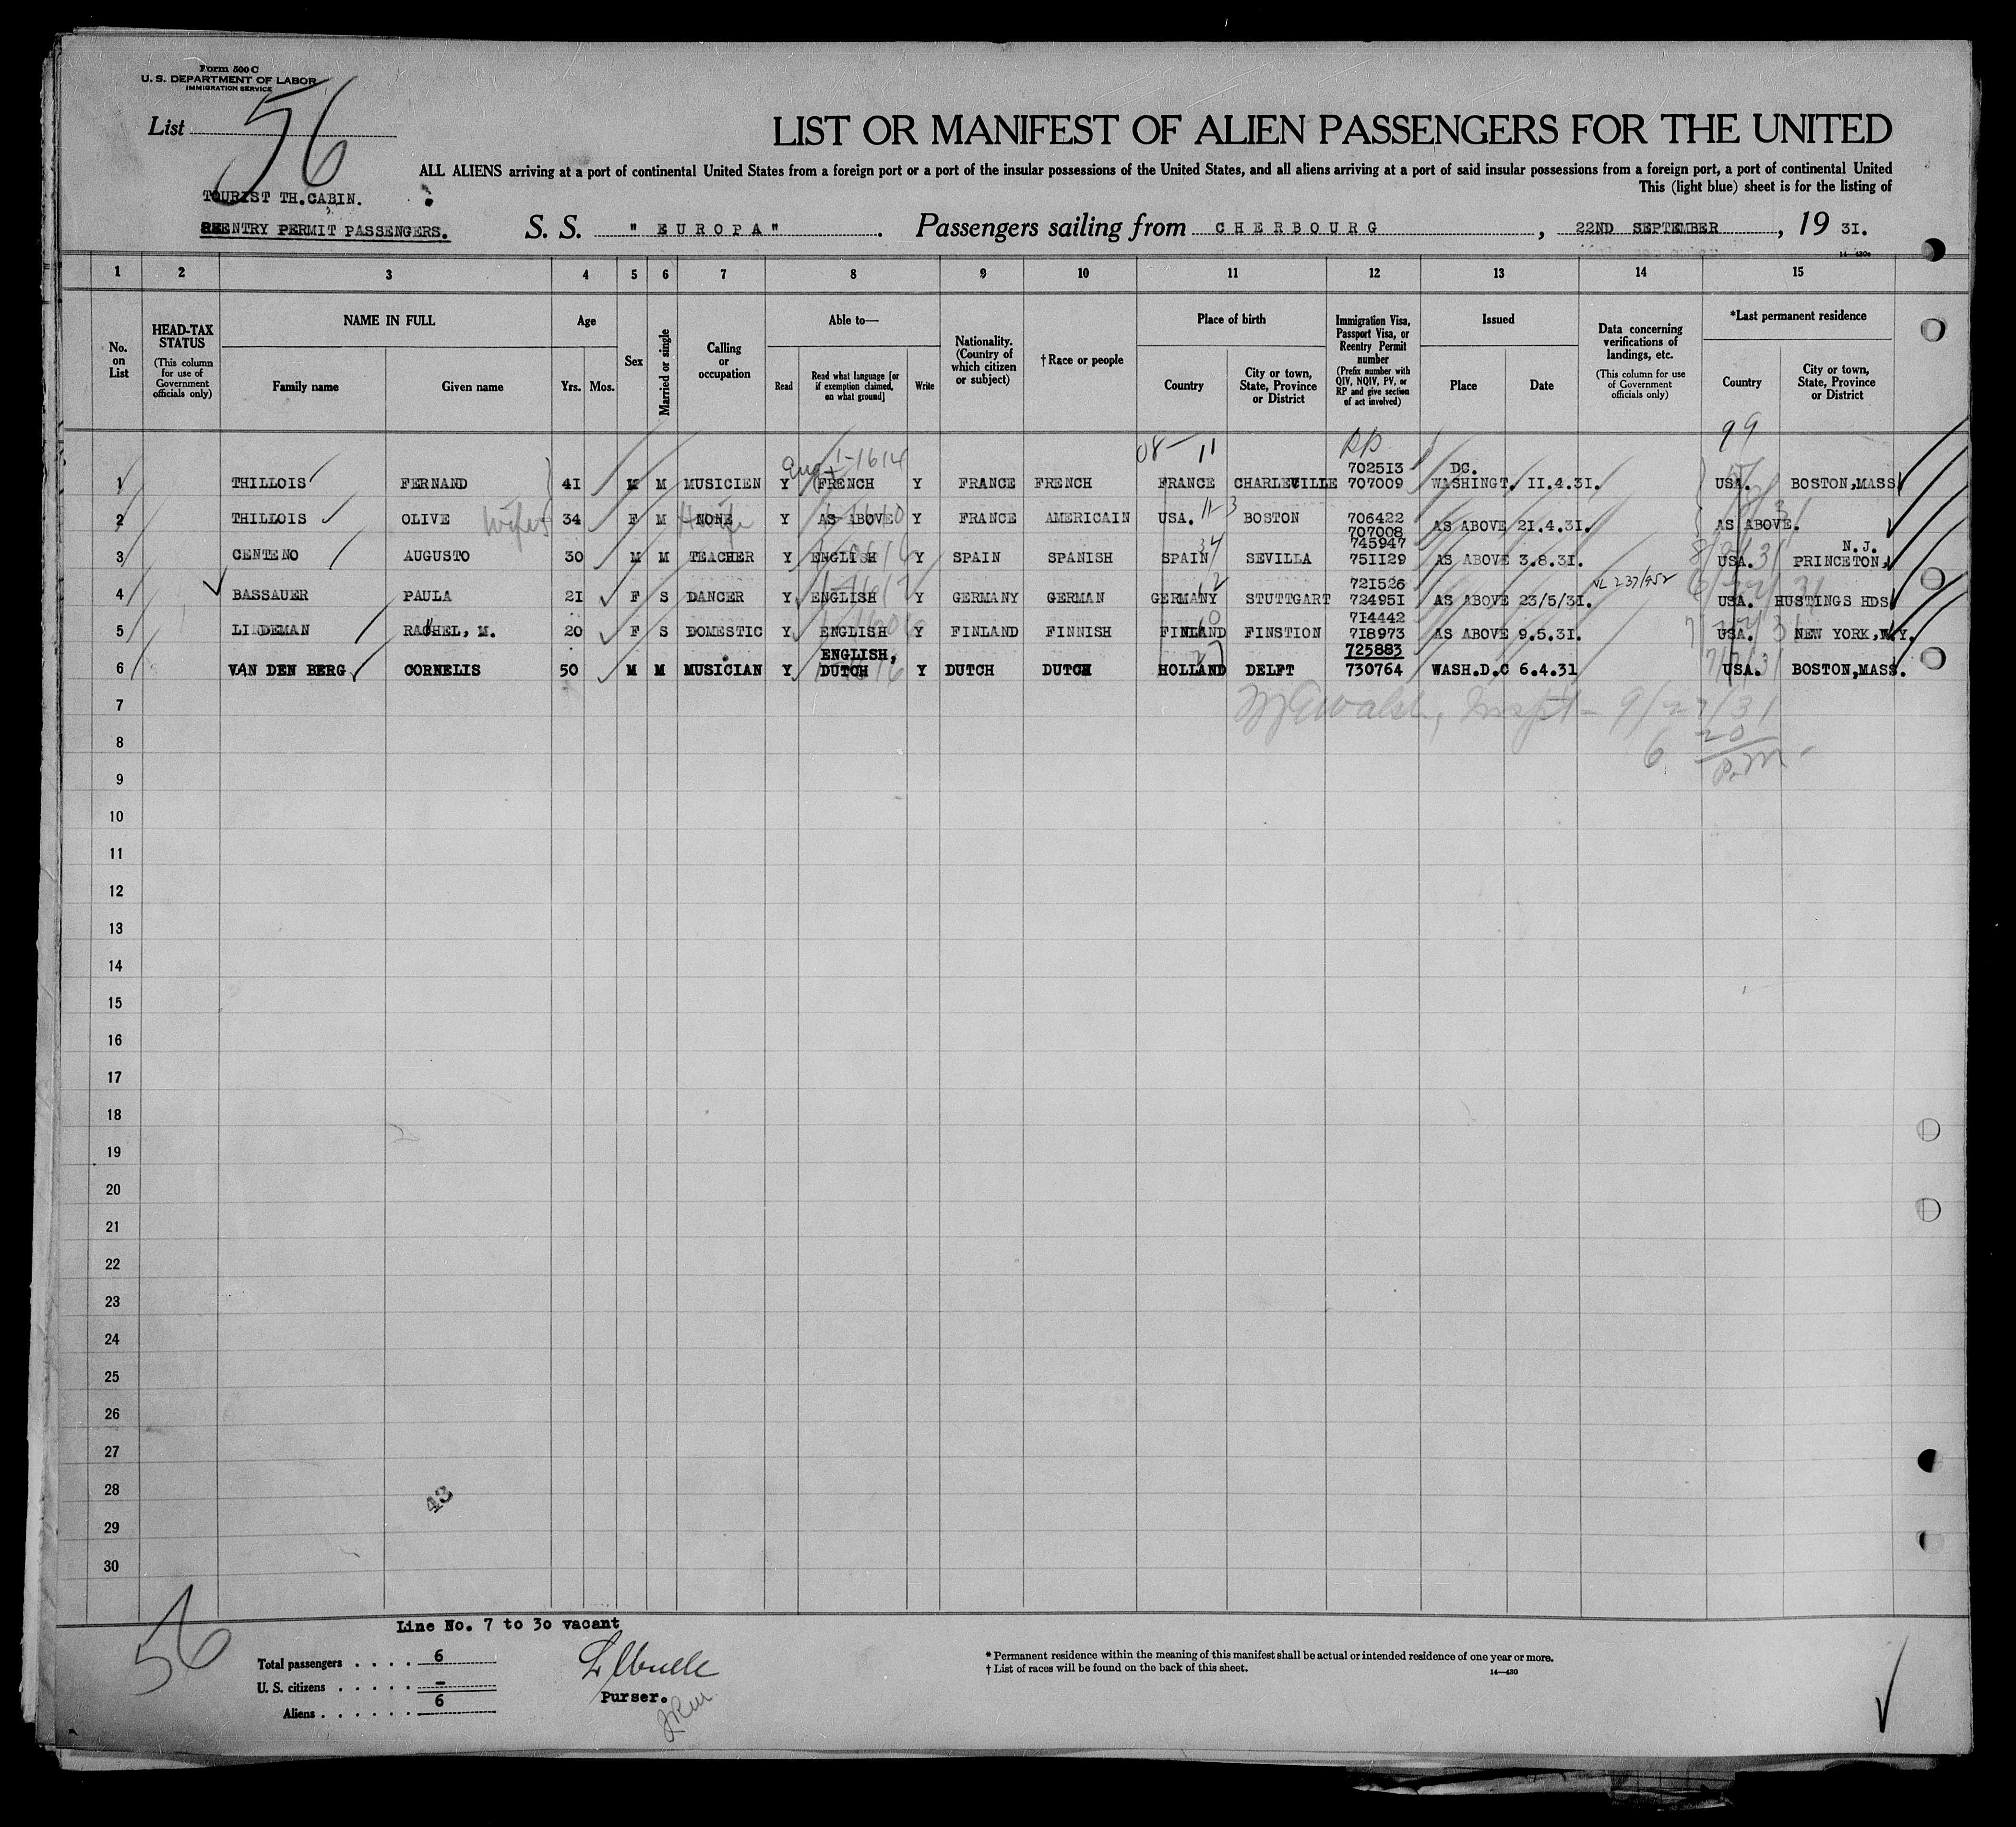 Form 500 C
U. S. DEPARTMENT OF LABOR
IMMIGRATION SERVICE
List 56
LIST OR MANIFEST OF ALIEN PASSENGERS FOR THE UNITED
ALL ALIENS arriving at a port of continental United States from a foreign port or a port of the insular possessions of the United States, and all aliens arriving at a port of said insular possessions from a foreign port, a port of continental United
This (light blue) sheet is for the listing of
TOURIST TH.CABIN.
REENTRY PERMIT PASSENGERS.
S. S. " EUROPA" . Passengers sailing from CHERBOURG , 22ND SEPTEMBER , 19 31.
14—430a
1 2 3 4 5 6 7 8 9 10 11 12 13 14 15
No. on List
HEAD-TAX STATUS (This column for use of Government officials only)
NAME IN FULL
Family name Given name
Age
Yrs. Mos.
Sex
Married or single
Calling or occupation
Able to—
Read
Read what language [or if exemption claimed, on what ground]
Write
Nationality. (Country of which citizen or subject)
† Race or people
Place of birth
Country
City or town, State, Province or District
Immigration Visa, Passport Visa, or Reentry Permit number (Prefix number with QIV, NQIV, PV, or RP and give section of act involved)
Issued
Place Date
Data concerning verifications of landings, etc. (This column for use of Government officials only)
*Last permanent residence
Country
City or town, State, Province or District
99
08- 11 RP
Eng + 1-1614 702513 DC.
1 THILLOIS FERNAND 41 M M MUSICIEN Y FRENCH Y FRANCE FRENCH FRANCE CHARLEVILLE 707009 WASHINGT. 11.4.31. USA. BOSTON,MASS
2 THILLOIS OLIVE wife 34 F M NONE H wife Y AS ABOVE Y FRANCE AMERICAIN USA. 11-3 BOSTON 706422 AS ABOVE 21.4.31. AS ABOVE.
707008
745947 N.J.
3 CENTENO AUGUSTO 30 M M TEACHER Y ENGLISH Y SPAIN SPANISH SPAIN 34 SEVILLA 751129 AS ABOVE 3.8.31. USA. PRINCETON,
721526 VL 237/952
4 BASSAUER PAULA 21 F S DANCER Y ENGLISH Y GERMANY GERMAN GERMANY STUTTGART 724951 AS ABOVE 23/5/31. USA. HUSTINGS HDS
714442
5 LINDEMAN RACHEL, M. 20 F S DOMESTIC Y ENGLISH Y FINLAND FINNISH FINLAND FINSTION 718973 AS ABOVE 9.5.31. USA. NEW YORK,N.Y.
ENGLISH, 725883
6 VAN DEN BERG CORNELIS 50 M M MUSICIAN Y DUTCH Y DUTCH DUTCH HOLLAND DELFT 730764 WASH.D.C 6.4.31 USA. BOSTON,MASS.
7 Walsh, Inspt - 9/27/31
8 6 20
9 P.M.
10
11
12
13
14
15
16
17
18
19
20
21
22
23
24
25
26
27
28 43
29
30
Line No. 7 to 30 vacant
56
Total passengers . . . . 6
U. S. citizens . . . . . —
Aliens . . . . . . 6
Purser.
* Permanent residence within the meaning of this manifest shall be actual or intended residence of one year or more.
† List of races will be found on the back of this sheet.
14—430